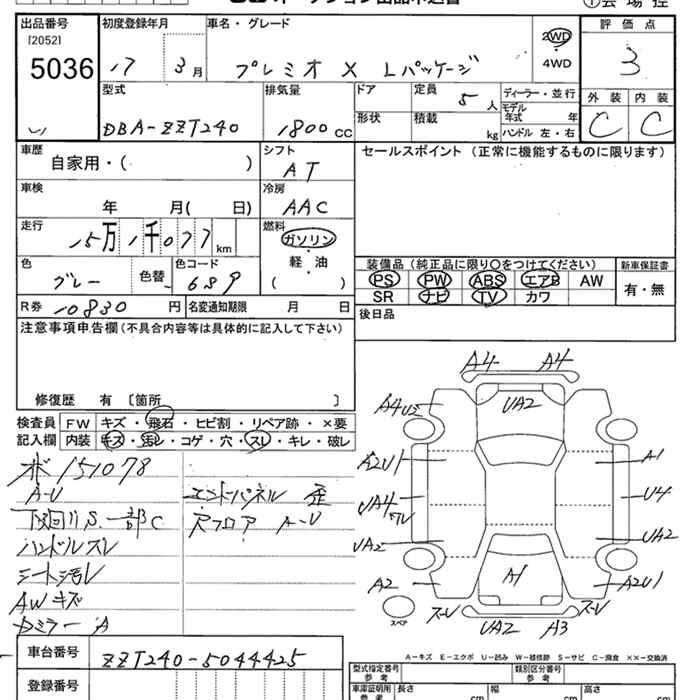 出品番号 初度登録年月 車名・グレード 2WD 評価点
[2052] 4WD
5036 17 3月 プレミオ X Lパッケージ 3
型式 排気量 ドア 定員 5人 ディーラー・並行 外装 内装
DBA-ZZT240 1800cc 形状 積載 kg モデル年式 年 C C
ハンドル 左・右
車歴 シフト セールスポイント (正常に機能するものに限ります)
自家用・( ) AT
車検 冷房
年 月( 日) AAC
走行 燃料
15万1千077km ガソリン
軽・油
( )
色 色替 色コード 装備品 (純正品に限り〇をつけてください) 新車保証書
グレー 689 PS PW ABS エアB AW 有・無
SR ナビ TV カワ
R券 10830円 名変通知期限 月 日 後日品
注意事項申告欄(不具合内容等は具体的に記入して下さい)
修復歴 有 〔箇所 〕
検査員 FW キズ・飛石・ヒビ割・リペア跡・×要
記入欄 内装 キズ・汚レ・コゲ・穴・スレ・キレ・破レ
151078
A-U エンドパネル 歪
下回りS.一部C Rフロア A-U
ハンドルスレ
シートヨゴレ
AWキズ
カミラー A
A4 A4
UA2
A2U1 A1
UA4 U4
UA2 UA2
A2 A1 A2U1
スペア スーU スーU
UA2 A3
A-キズ E-エクボ U-凹み W-修理跡 S-サビ C-腐食 ××-交換済
車台番号 ZZT240-5044425
型式指定番号 参考 類別区分番号 参考
登録番号 車庫証明用 参考 長さ cm 幅 cm 高さ cm